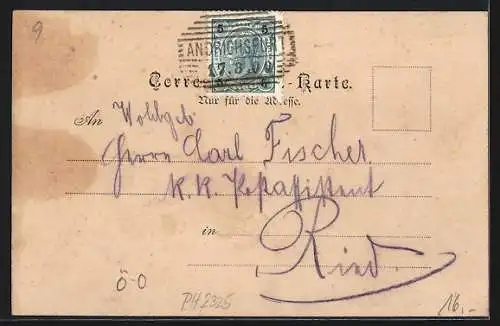 9
5 5
ANDRICHSFURT
17.3.00
Corre -Karte.
Nur für die Adresse.
An Wohlgeb
Herrn Carl Fischer
k. k. Postassistent
in
Ried.
Ö-O
PH2325
16,-